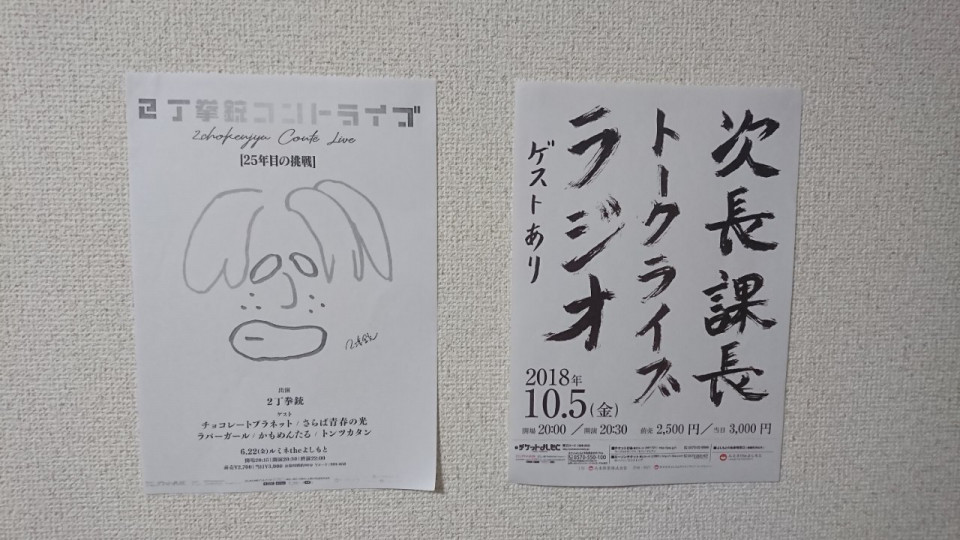 2丁拳銃コントライブ
2chokenjyu Conte Live
[25年目の挑戦]
出演
2丁拳銃
ゲスト
チョコレートプラネット / さらば青春の光
ラバーガール / かもめんたる / トンツカタン
6.22(金)ルミネtheよしもと
次長課長
トークライズ
ラジオ
ゲストあり
2018年
10.5(金)
開場 20:00 ／開演 20:30 前売 2,500 円／当日 3,000 円
チケットよしもと